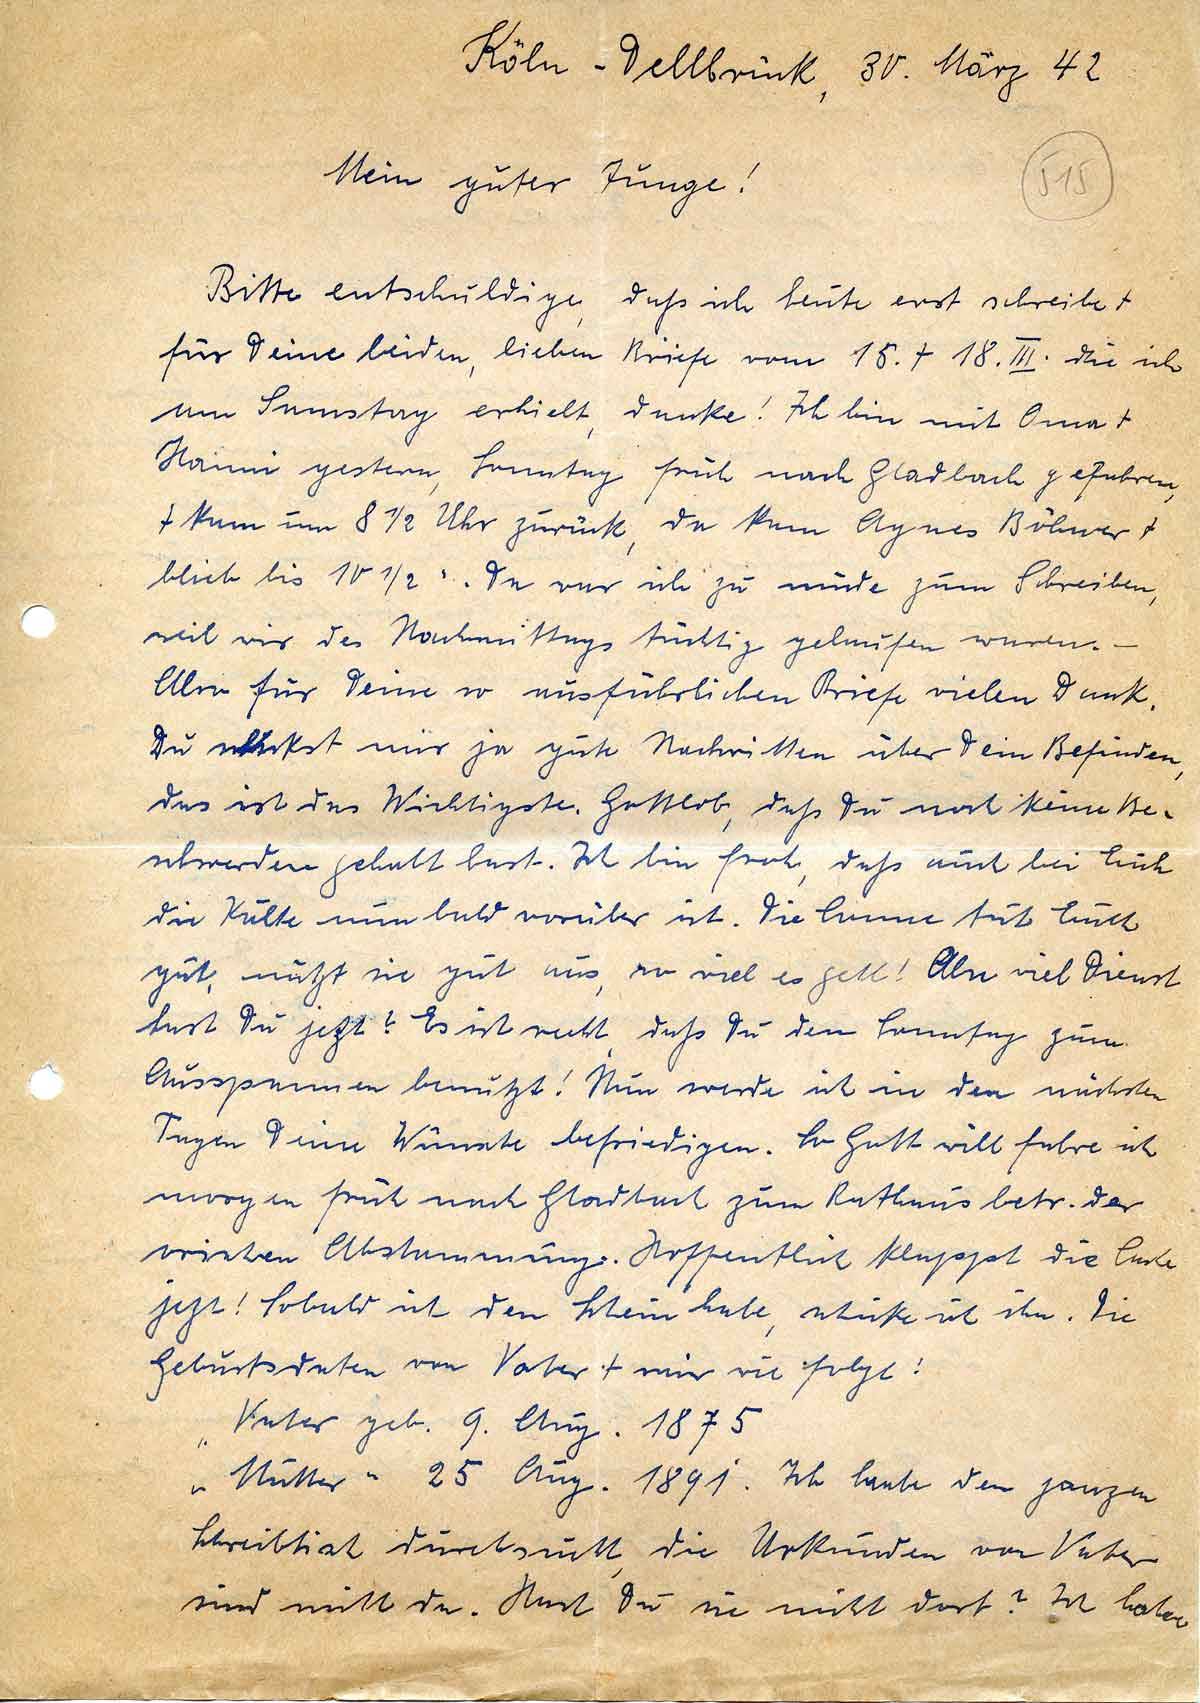 Köln - Dellbrück, 30. März 42
515
Mein guter Junge!
Bitte entschuldige, daß ich heute erst schreibe +
für Deine beiden, lieben Briefe vom 15. + 18. III. die ich
am Samstag erhielt, danke! Ich bin mit Oma +
Hanni gestern, Sonntag früh nach Gladbach gefahren,
+ kam um 8 1/2 Uhr zurück, da kam Agnes Böhmer +
blieb bis 10 1/2 ". Da war ich zu müde zum Schreiben,
weil wir des Nachmittags tüchtig gelaufen waren. -
Also für Deine so ausführlichen Briefe vielen Dank.
Du schickst mir ja gute Nachrichten über Dein Befinden,
das ist das Wichtigste. Gottlob, daß Du noch keine Be-
schwerden gehabt hast. Ich bin froh, daß auch bei Euch
die Kälte nun bald vorüber ist. Die Sonne tut Euch
gut, nützt sie gut aus, so viel es geht! Also viel Dienst
hast Du jetzt? Es ist recht, daß Du den Sonntag zum
Ausspannen benutzt! Nun werde ich in den nächsten
Tagen Deine Wünsche befriedigen. So Gott will fahre ich
morgen früh nach Gladbach zum Rathaus betr. der
arischen Abstammung. Hoffentlich klappt die Sache
jetzt! Sobald ich den Schein habe, schicke ich ihn. Die
Geburtsdaten von Vater + mir wie folgt!
" Vater geb. 9. Aug. 1875
" Mutter " 25 Aug. 1891. Ich habe den ganzen
Schreibtisch durchsucht, die Urkunden von Vater
sind nicht da. Hast Du sie nicht dort? Ich habe